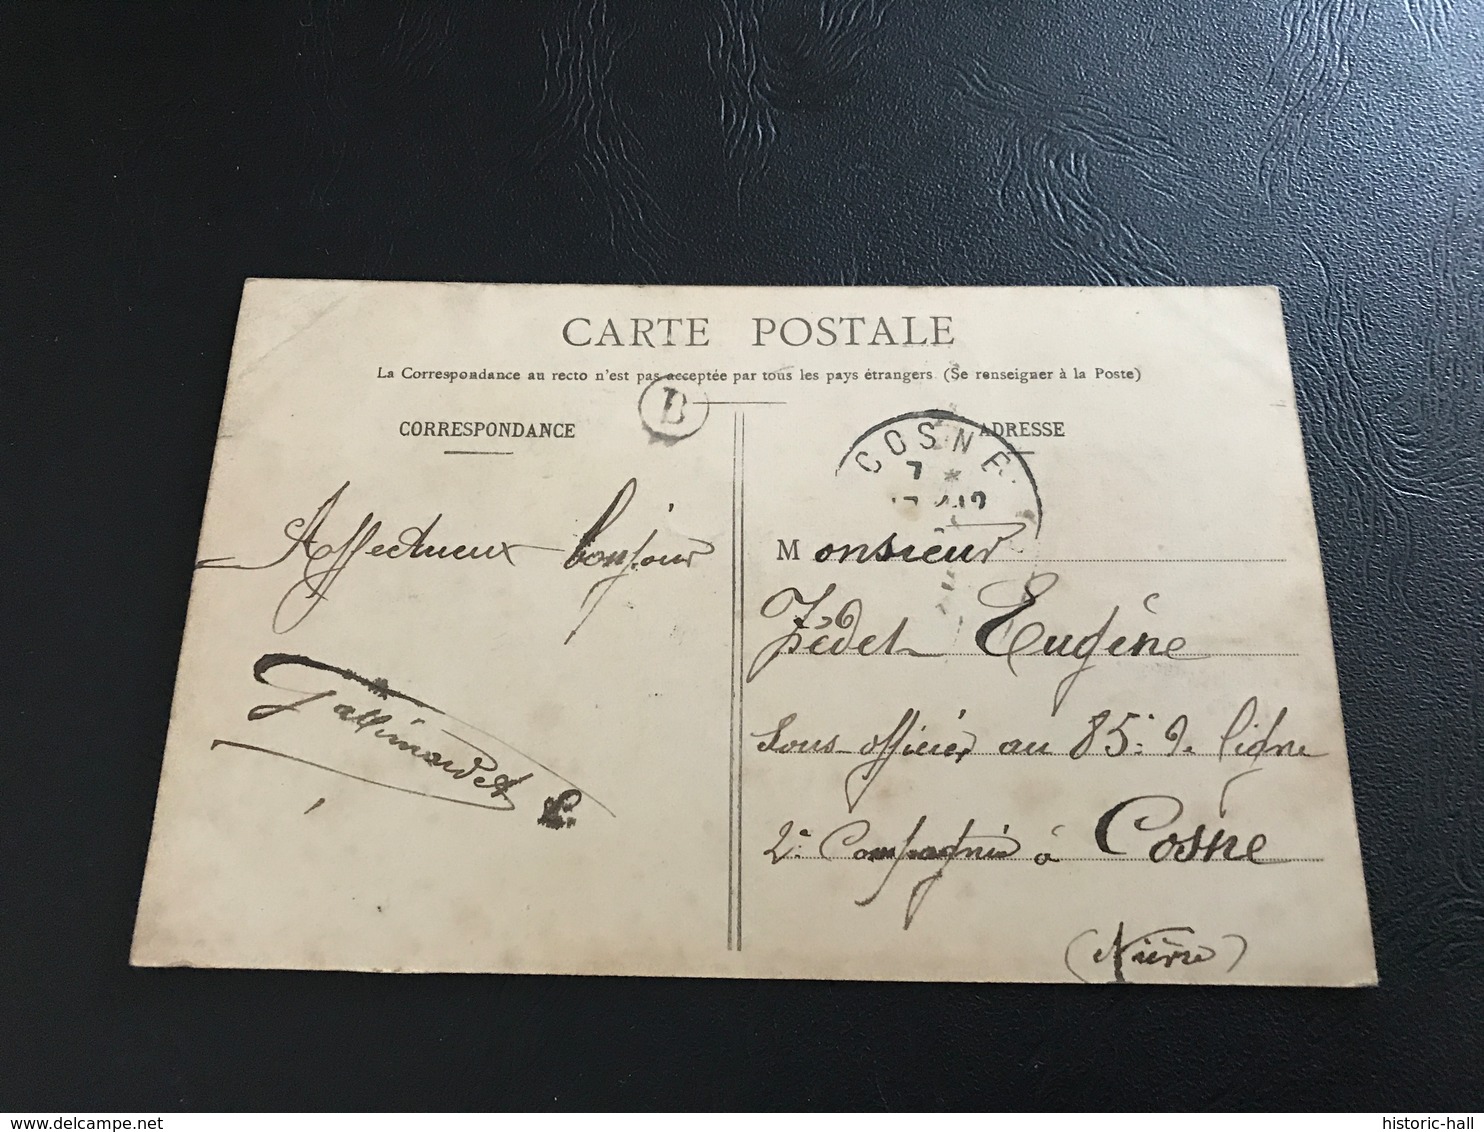 CARTE POSTALE
La Correspondance au recto n'est pas acceptée par tous les pays étrangers. (Se renseigner à la Poste)
B
CORRESPONDANCE
Affectueux bonjour
Gallimardet
ADRESSE
COSNE
7 *
Monsieur
Zédet Eugène
Sous-officier au 85e de ligne
2e Compagnie à Cosne
(Nièvre)
historic-hall
delcampe.net